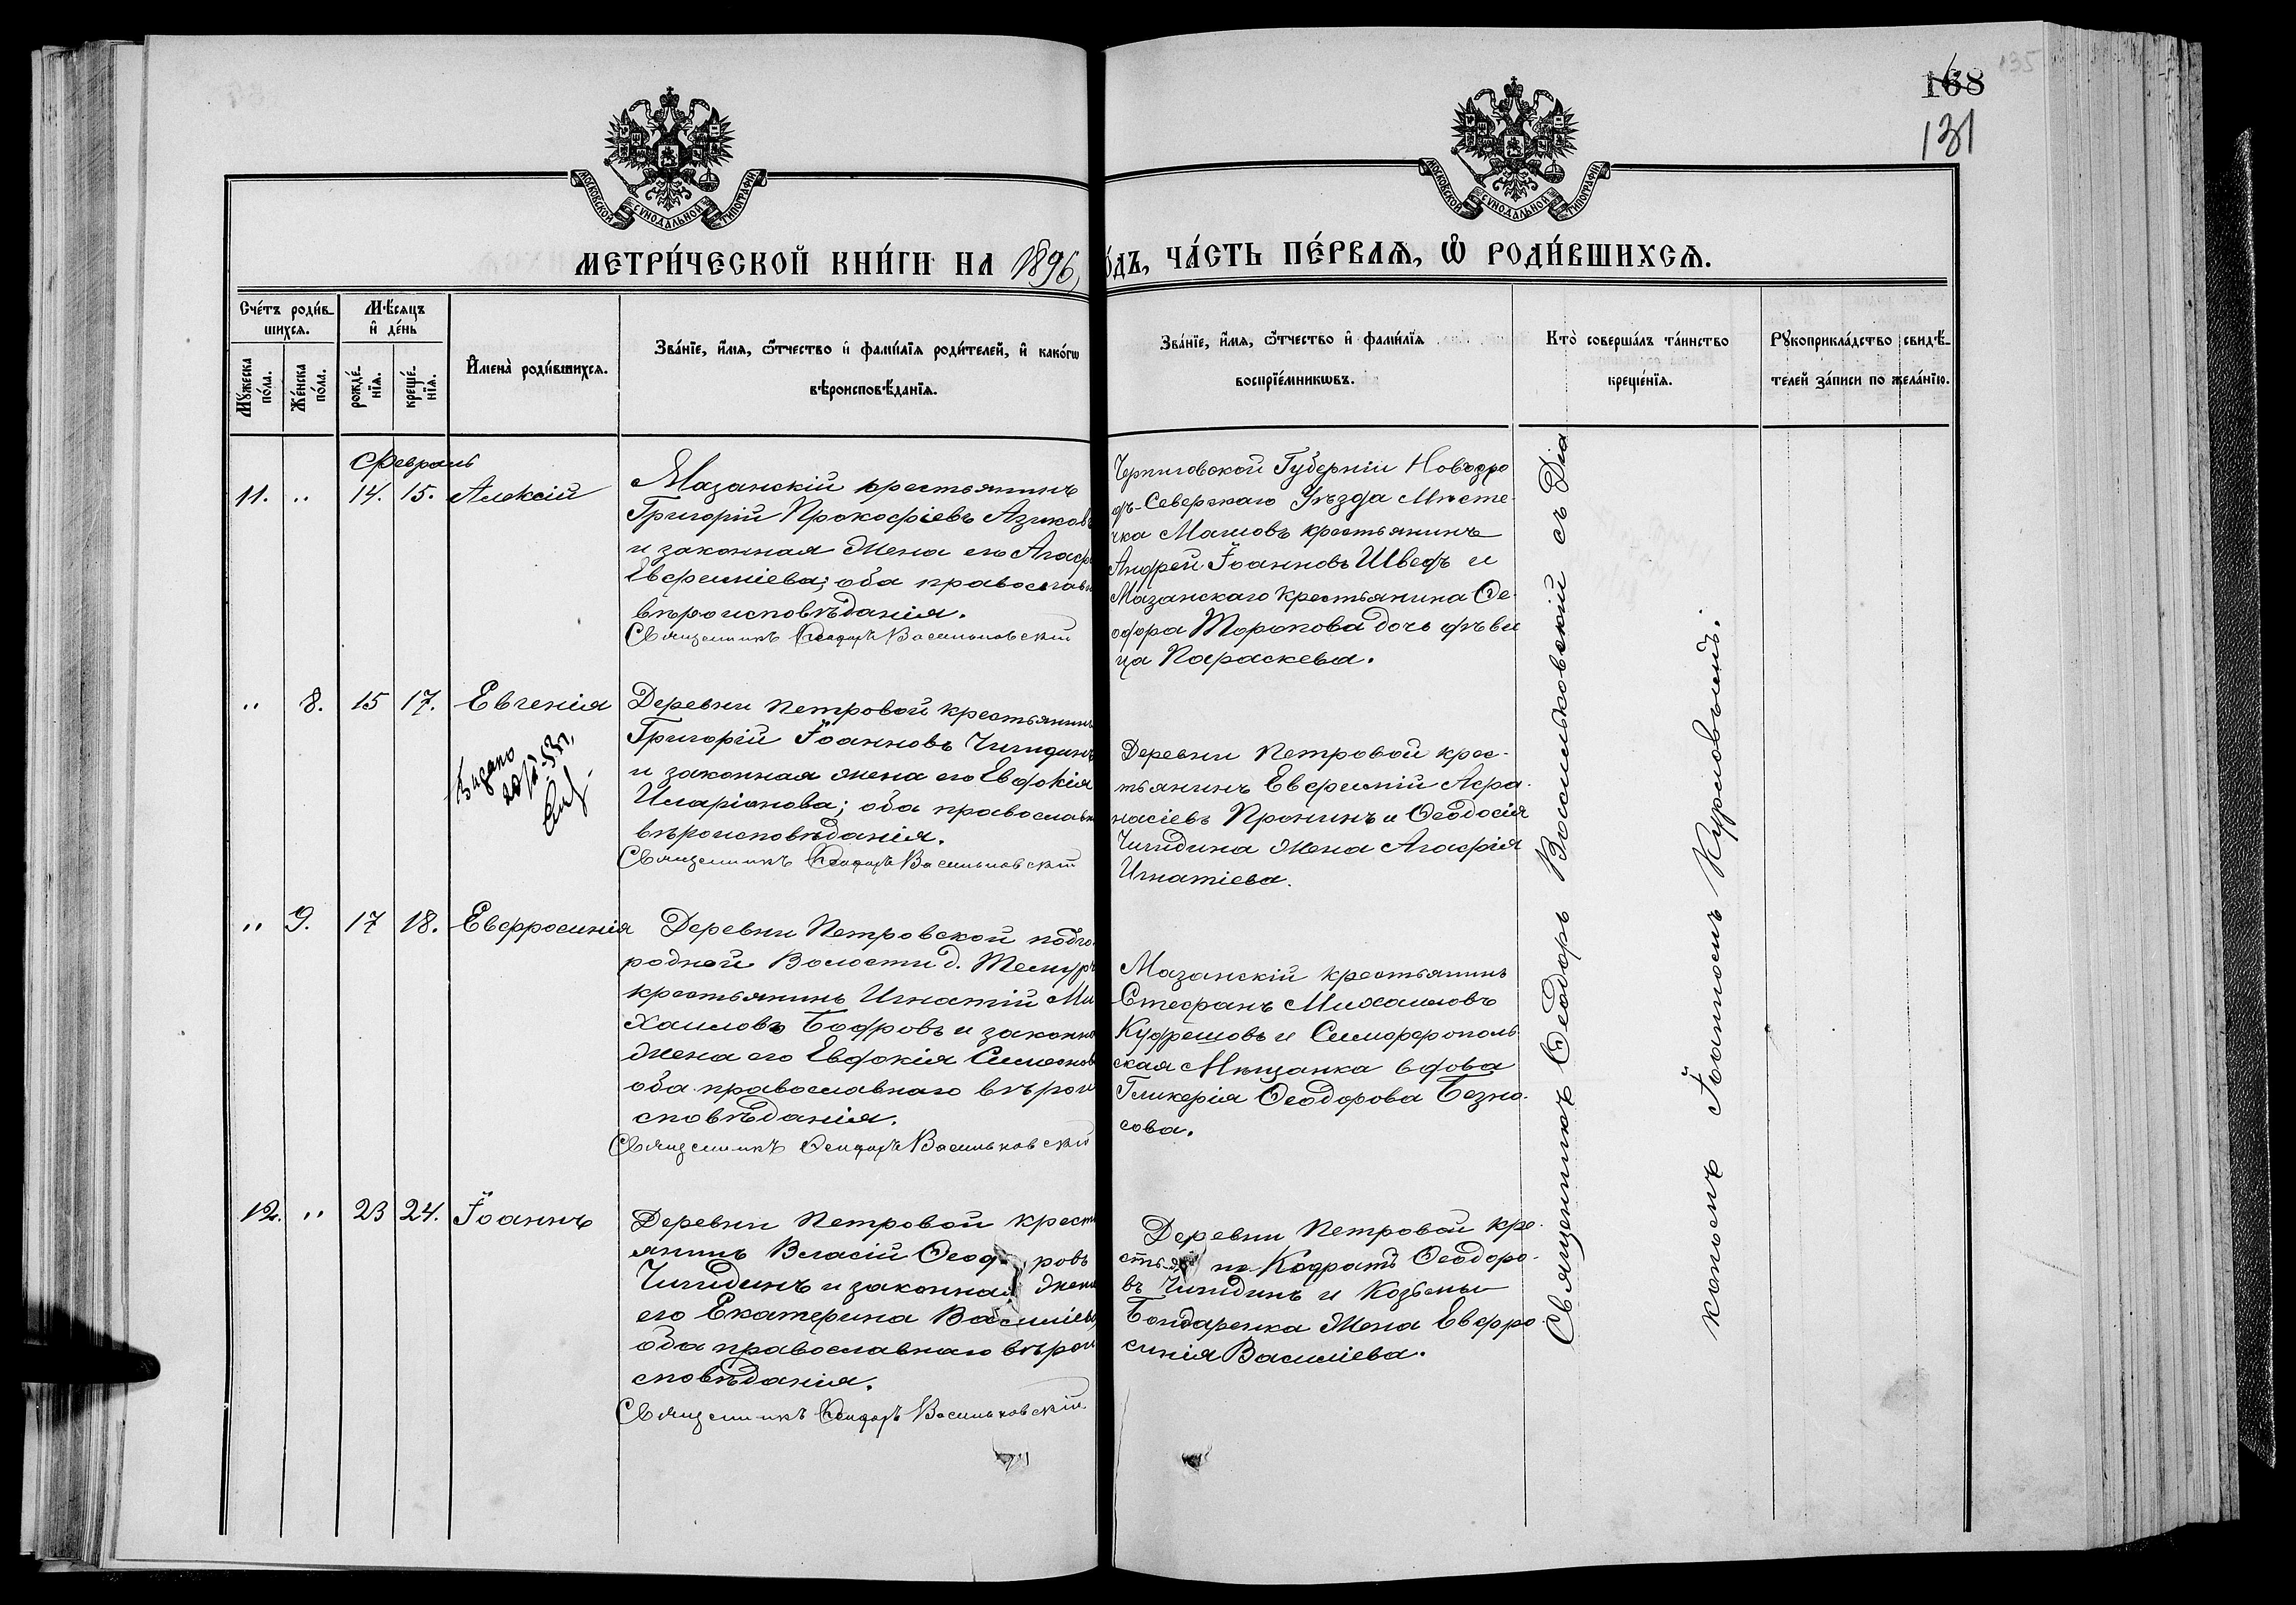 168
135
131
МОСКОВСКОЙ СѴНОДАЛЬНОЙ ТИПОГРАФІИ
МОСКОВСКОЙ СѴНОДАЛЬНОЙ ТИПОГРАФІИ
МЕТРИ́ЧЕСКОЙ КНИ́ГИ НА 1896,
о́дъ, ЧА́СТЬ ПЕ́РВАѦ, Ѡ РОДИ́ВШИХСѦ.
Сче́тъ роди́в-
шихсѧ.
Мѣ́сѧцъ
и҆ де́нь
Мꙋ́жеска
по́ла.
Же́нска
по́ла.
рожде́-
нїѧ.
креще́-
нїѧ.
И҆мена̀ роди́вшихсѧ.
Зва́нїе, и҆́мѧ, ѻ҆́тчество и҆ фами́лїѧ роди́телей, и҆ како́гѡ
вѣроисповѣ́данїѧ.
Зва́нїе, и҆́мѧ, ѻ҆́тчество и҆ фами́лїѧ
воспрїе́мникѡвъ.
Кто̀ соверша́лъ та́инство
креще́нїѧ.
Рꙋкоприкла́дство свидѣ́-
телей за́писи по жела́нїю.
Февраль
11. " 14. 15. Алексій
Мазанскій крестьянинъ
Григорій Прокофіевъ Азиков
и законная жена его Агаф
Евфиміева; оба православн
вѣроисповѣданія.
Священникъ Ѳеодоръ Васильковскій
Черниговской Губерніи Новогро
дъ-Северскаго Уѣзда Мѣсте-
чка Машовъ крестьянинъ
Андрей Іоанновъ Шведъ и
Мазанскаго крестьянина Ѳе-
одора Торопова дочь дѣви
ца Параскева.
" 8. 15 17. Евгенія
Выдано
Деревни Петровой крестьянин
Григорій Іоанновъ Чигидинъ
и законная жена его Евдокія
Иларіонова; оба православн
вѣроисповѣданія.
Священникъ Ѳеодоръ Васильковскій
Деревни Петровой крес-
тьянинъ Евфимій Аѳа-
насіевъ Пронинъ и Ѳеодосія
Чигидина жена Агафія
Игнатіева.
" 9. 17 18. Евфросинія
Деревни Петровской подго
родней Волости д. Темир
крестьянинъ Игнатій Ми
хаиловъ Бобровъ и законна
жена его Евдокія Симеонов
оба православнаго вѣрои
сповѣданія.
Священникъ Ѳеодоръ Васильковскій
Мазанскій крестьянинъ
Стефанъ Михаиловъ
Кудрешовъ и Симферополь
ская Мѣщанка вдова
Гликерія Ѳеодорова Безно-
сова.
12. " 23 24. Іоаннъ
Деревни Петровой крест
янинъ Власій Ѳеод ровъ
Чигидинъ и законная жена
его Екатерина Василіев
оба православнаго вѣрои
сповѣданія.
Священникъ Ѳеодоръ Васильковскій
Деревни Петровой кре-
стьян нъ Кодратъ Ѳеодоро-
въ Чигидинъ и Козьмы
Бондаренка жена Евфро-
синія Василіева.
Священникъ Ѳеодоръ Васильковскій съ Діа
кономъ Іоанномъ Куриловымъ.